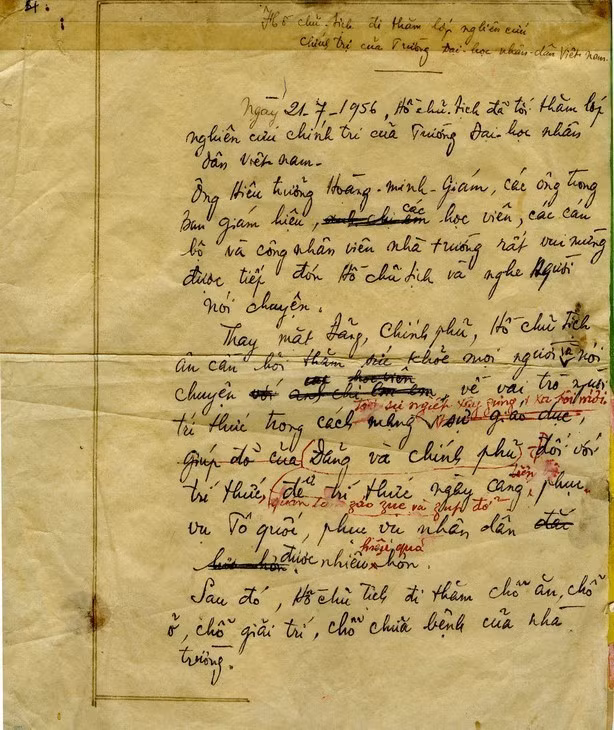 Hồ chủ-tịch đi thăm lớp nghiên cứu
chính trị của Trường Đại-học nhân-dân Việt-nam.
Ngày 21-7-1956, Hồ chủ tịch đã tới thăm lớp
nghiên cứu chính trị của Trường Đại-học nhân
dân Việt-nam.
Ông Hiệu trưởng Hoàng-minh-Giám, các ông trong
ban giám hiệu, anh chị em các học viên, các cán
bộ và công nhân viên nhà trường rất vui mừng
được tiếp đón Hồ chủ tịch và nghe Người
nói chuyện.
Thay mặt Đảng, Chính phủ, Hồ chủ tịch
ân cần hỏi thăm sức khỏe mọi người và nói
chuyện với anh chị em học viên về vai trò người
tới sự nghiệp xây dựng xã hội mới
trí thức trong cách mạng, sự giáo dục,
giúp đỡ của Đảng và chính phủ đối với
trí thức, để trí thức ngày càng tiến phục
quan tâm giáo dục và giúp đỡ
vụ Tổ quốc, phục vụ nhân dân
được nhiều hiệu quả hơn.
Sau đó, Hồ chủ tịch đi thăm chỗ ăn, chỗ
ở, chỗ giải trí, chỗ chữa bệnh của nhà
trường.